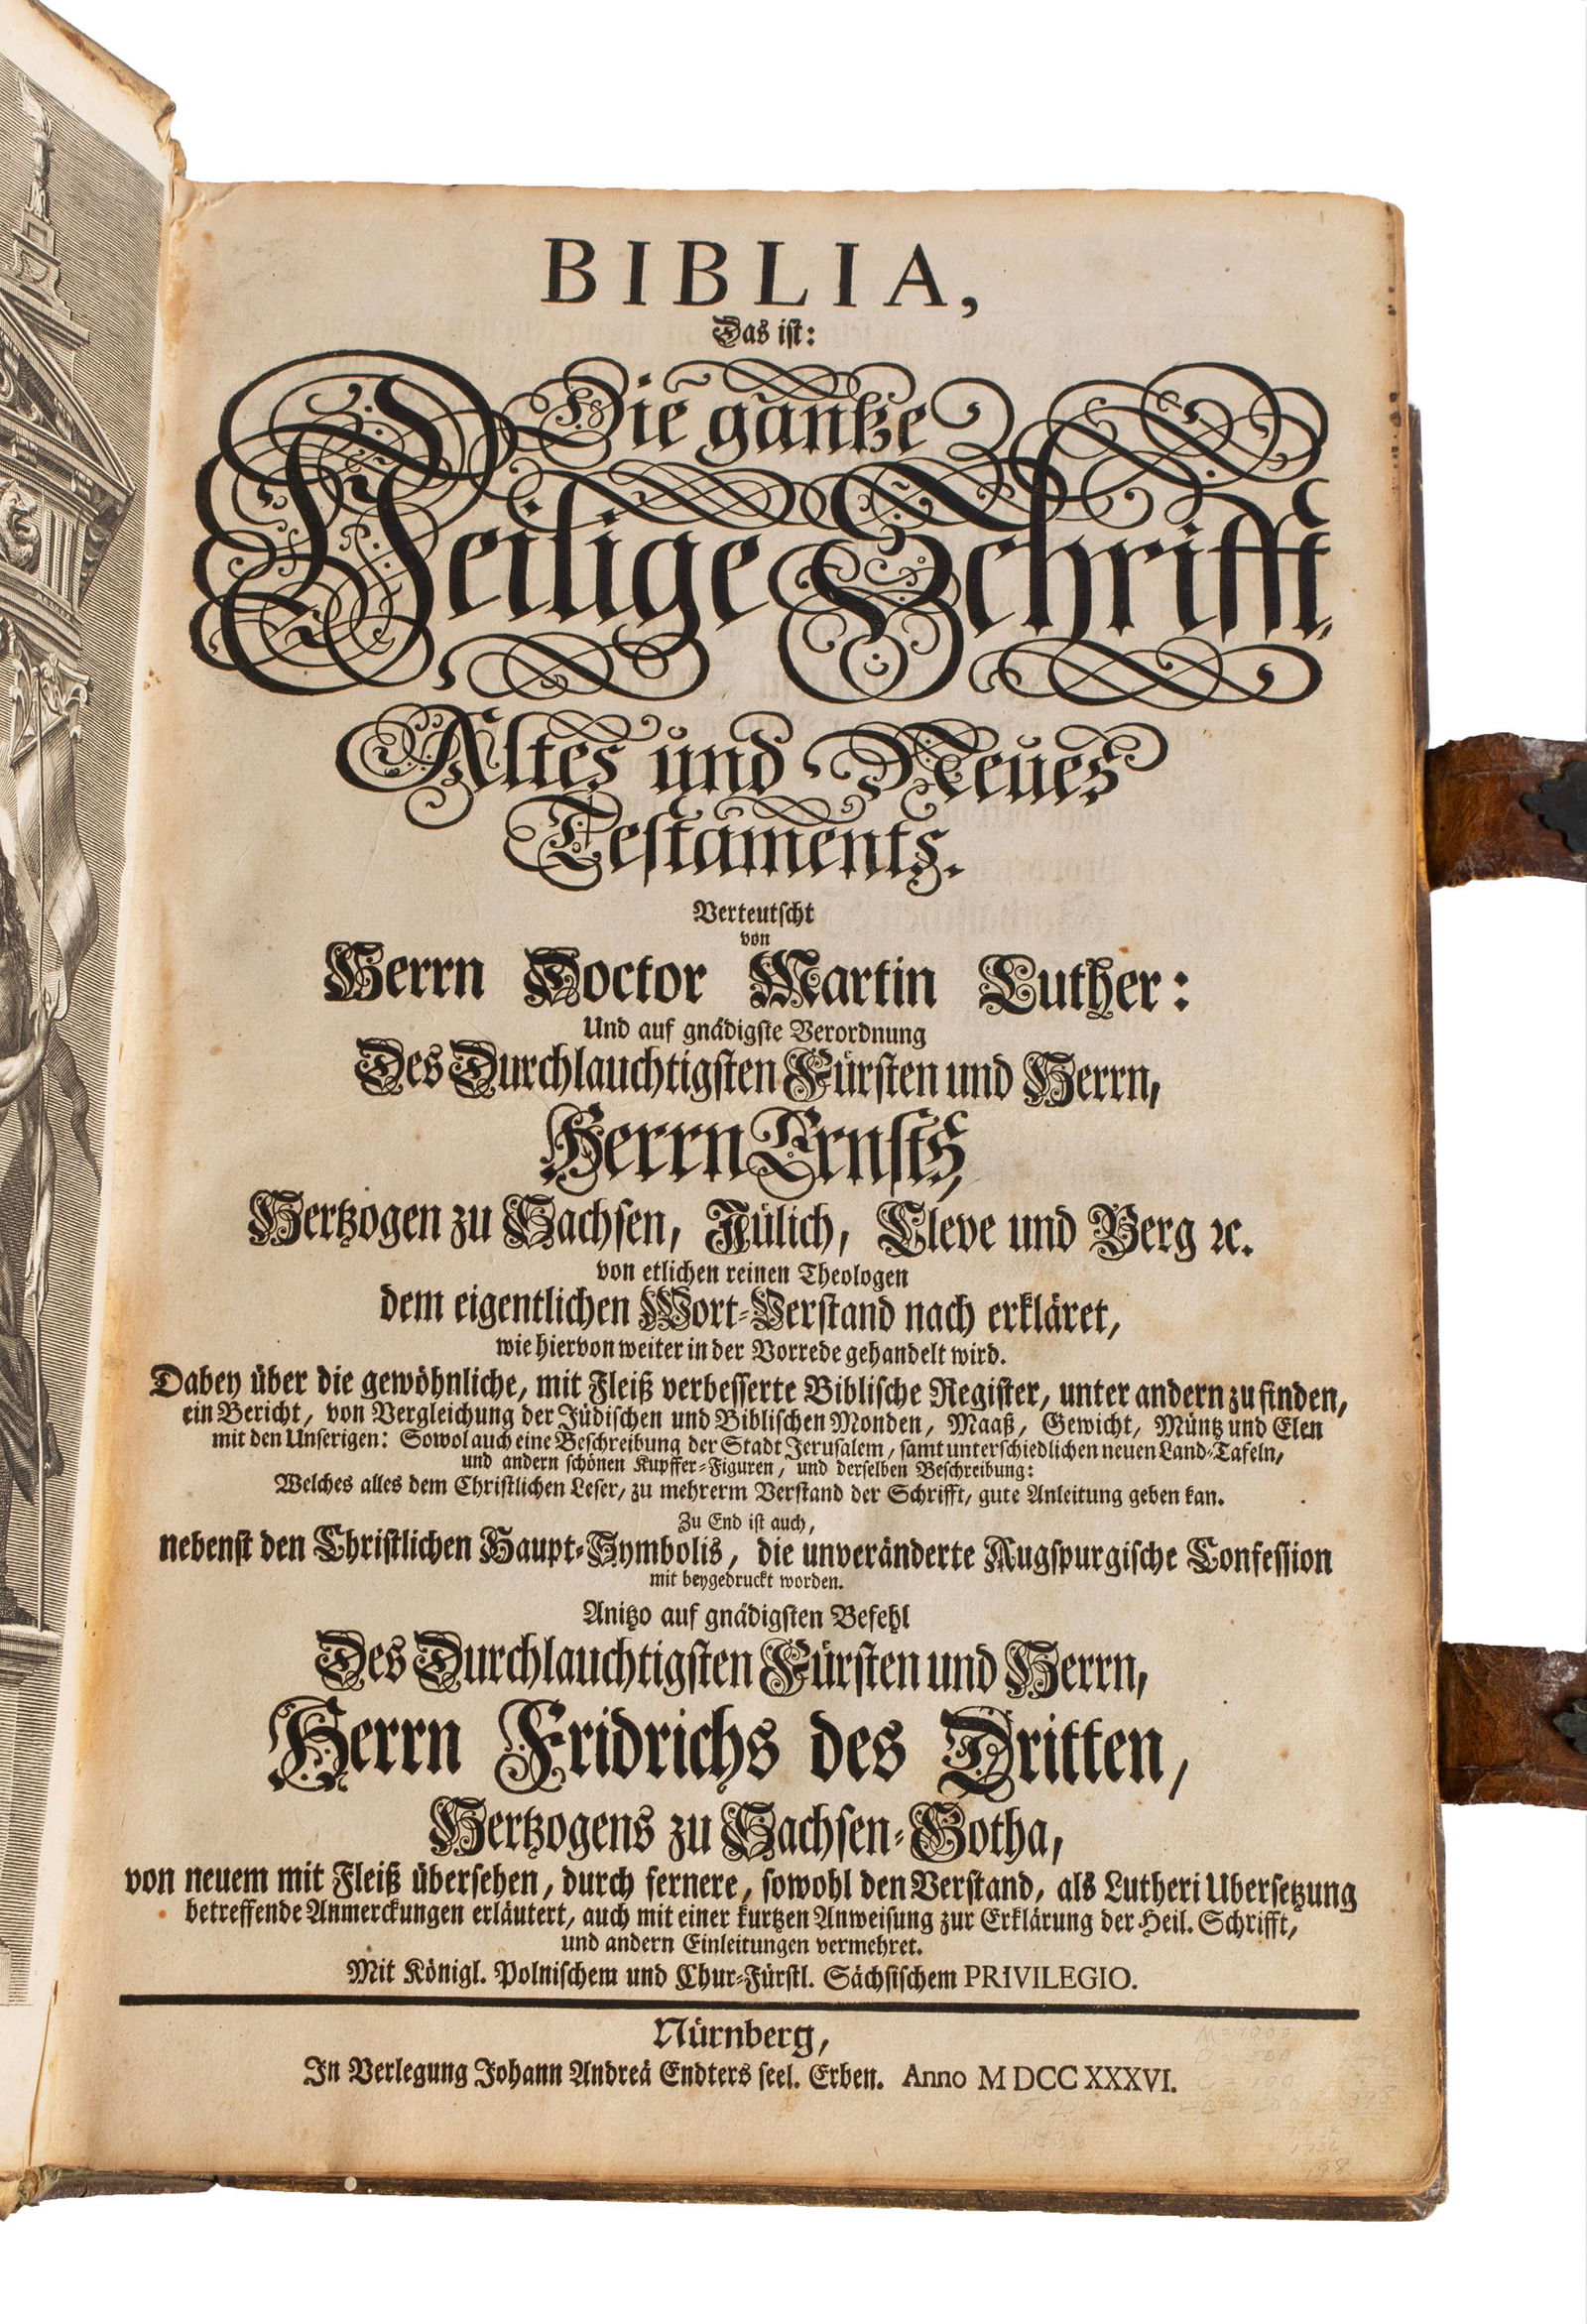 BIBLIA,
Das ist:
Die gantze
Heilige Schrifft,
Altes und Neues
Testaments.
Verteutscht
von
Herrn Doctor Martin Luther:
Und auf gnädigste Verordnung
Des Durchlauchtigsten Fürsten und Herrn,
Herrn Ernsts,
Hertzogen zu Sachsen, Jülich, Cleve und Berg ꝛc.
von etlichen reinen Theologen
dem eigentlichen Wort-Verstand nach erkläret,
wie hiervon weiter in der Vorrede gehandelt wird.
Dabey über die gewöhnliche, mit Fleiß verbesserte Biblische Register, unter andern zu finden,
ein Bericht, von Vergleichung der Jüdischen und Biblischen Monden, Maaß, Gewicht, Müntz und Elen
mit den Unserigen: Sowol auch eine Beschreibung der Stadt Jerusalem, samt unterschiedlichen neuen Land-Tafeln,
und andern schönen Kupffer-Figuren, und derselben Beschreibung:
Welches alles dem Christlichen Leser, zu mehrerm Verstand der Schrifft, gute Anleitung geben kan.
Zu End ist auch,
nebenst den Christlichen Haupt-Symbolis, die unveränderte Augspurgische Confession
mit beygedruckt worden.
Anitzo auf gnädigsten Befehl
Des Durchlauchtigsten Fürsten und Herrn,
Herrn Fridrichs des Dritten,
Hertzogens zu Sachsen-Gotha,
von neuem mit Fleiß übersehen, durch fernere, sowohl den Verstand, als Lutheri Ubersetzung
betreffende Anmerckungen erläutert, auch mit einer kurtzen Anweisung zur Erklärung der Heil. Schrifft,
und andern Einleitungen vermehret.
Mit Königl. Polnischem und Chur-Fürstl. Sächsischem PRIVILEGIO.
Nürnberg,
In Verlegung Johann Andreä Endters seel. Erben. Anno MDCCXXXVI.